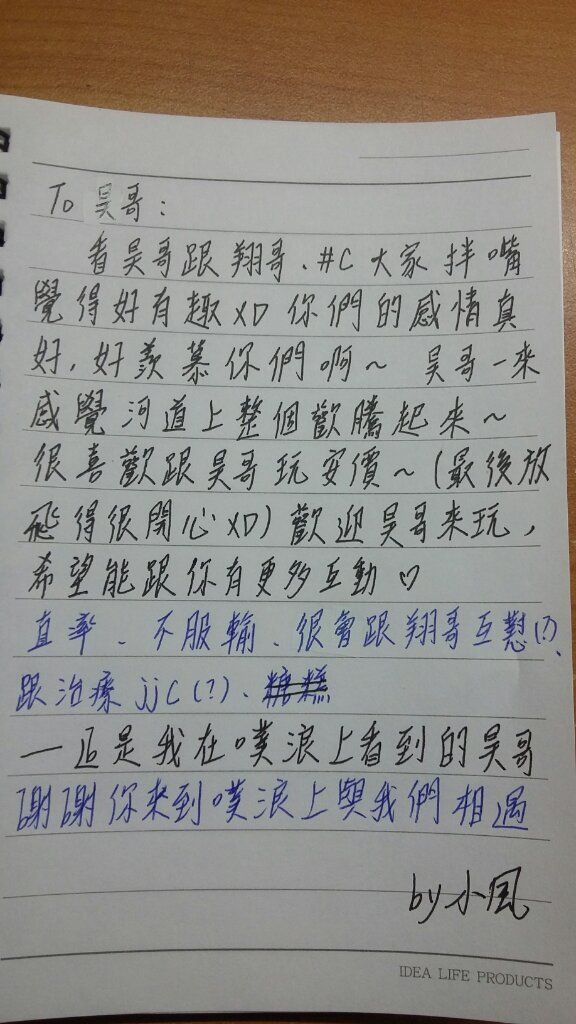 To 昊哥：
看昊哥跟翔哥、#C大家拌嘴
覺得好有趣XD 你們的感情真
好，好羨慕你們啊～ 昊哥一來
感覺河道上整個歡騰起來～
很喜歡跟昊哥玩安價～(最後放
飛得很開心XD) 歡迎昊哥來玩，
希望能跟你有更多互動♡
直率、不服輸、很會跟翔哥互懟(?)、
跟治療jjC(?)、糖糕
—這是我在噗浪上看到的昊哥
謝謝你來到噗浪上與我們相遇
by 小風
IDEA LIFE PRODUCTS